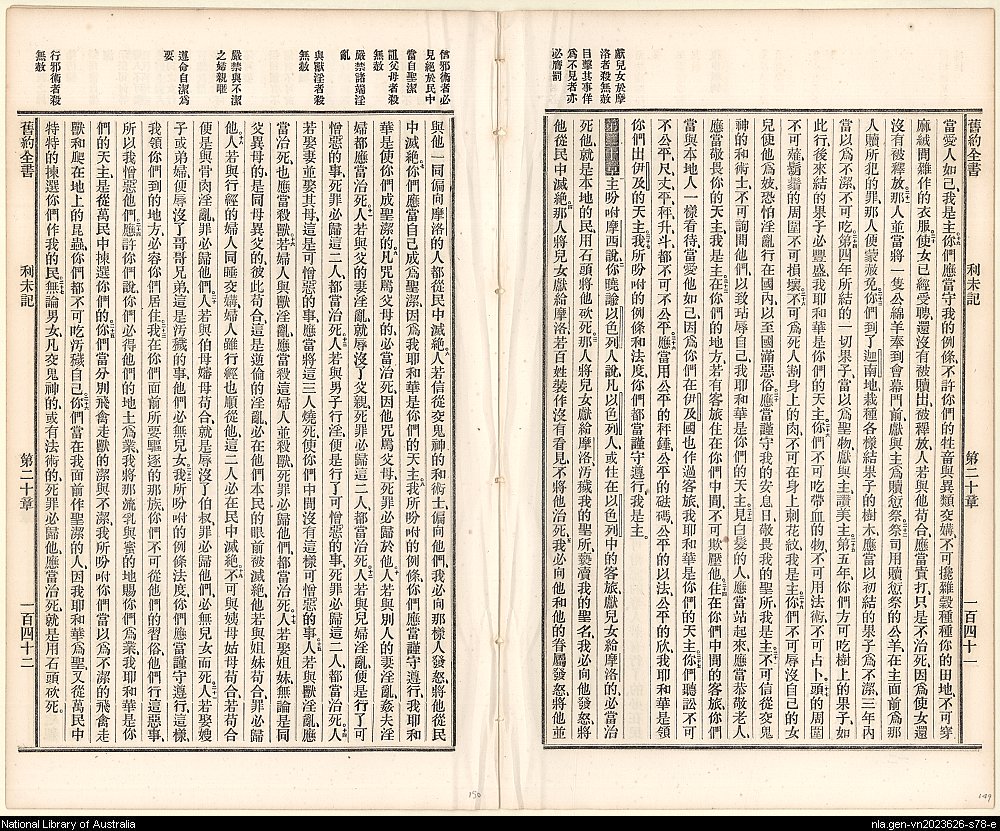 舊約全書 利未記 第二十章 一百四十一
獻兒女於摩
洛者殺無赦
目擊其事佯
爲不見者亦
必膺罰
當愛人如己、我是主、你們應當守我的例條、不許你們的牲畜與異類交媾、不可攙雜穀種種你的田地、不可穿
麻絨間雜作的衣服、使女已經受聘、還沒有被贖出、被釋放、人若與他苟合、應當責打、只是不治死、因爲使女還
沒有被釋放、那人並當將一隻公綿羊奉到會幕門前、獻與主爲贖愆祭、祭司用贖愆祭的公羊、在主面前爲那
人贖所犯的罪、那人便蒙赦免、你們到了迦南地、栽種各樣結果子的樹木、應當以初結的果子爲不潔、三年內
當以爲不潔、不可吃、第四年所結的一切果子、當以爲聖物、獻與主讚美主、第五年、你們方可吃樹上的果子、如
此行、後來結的果子必豐盛、我耶和華是你們的天主、你們不可吃帶血的物、不可用法術、不可占卜、頭的周圍
不可薙、鬍鬚的周圍不可損壞、不可爲死人劃身上的肉、不可在身上刺花紋、我是主、你們不可辱沒自己的女
兒使他爲妓、恐怕淫亂行在國內、以至國滿惡俗、應當謹守我的安息日、敬畏我的聖所、我是主、不可信從交鬼
神的和術士、不可詢問他們、以致玷辱自己、我耶和華是你們的天主、見白髮的人應當站起來、應當恭敬老人、
應當敬畏你的天主、我是主、在你們的地方、若有客旅住在你們中間、不可欺壓他、住在你們中間的客旅、你們
當與本地人一樣看待、當愛他如己、因爲你們在伊及國也作過客旅、我耶和華是你們的天主、你們聽訟不可
不公平、尺丈平秤升斗、都不可不公平、應當用公平的秤錘、公平的砝碼、公平的以法、公平的欣、我耶和華是領
你們出伊及的天主、我所吩咐的例條和法度、你們都當謹守遵行、我是主、
第二十章 主吩咐摩西說、你曉諭以色列人說、凡以色列人、或住在以色列中的客旅、獻兒女給摩洛的、必當治
死他、就是本地的民用石頭將他砍死、那人將兒女獻給摩洛、汚穢我的聖所、褻瀆我的聖名、我必向他發怒、將
他從民中滅絕、那人將兒女獻給摩洛、若百姓裝作沒有看見、不將他治死、我必向他和他的眷屬發怒、將他並
信邪術者必
見絕於民中
當自聖潔
詛父母者殺
無赦
嚴禁諸端淫
亂
與獸淫者殺
無赦
嚴禁與不潔
之婦親暱
遵命自潔爲
要
行邪術者殺
無赦
與他一同偏向摩洛的人、都從民中滅絕、人若信從交鬼神的和術士、偏向他們、我必向那樣人發怒、將他從民
中滅絕、你們應當自己成爲聖潔、因爲我耶和華是你們的天主、我所吩咐的例條、你們應當謹守遵行、我耶和
華是使你們成聖潔的、凡咒罵父母的、必當治死、因他咒罵父母、死罪必歸於他、人若與別人的妻淫亂、姦夫淫
婦都應當治死、人若與父的妻淫亂、就辱沒了父親、死罪必歸這二人、都當治死、人若與兒婦淫亂、便是行了可
憎惡的事、死罪必歸這二人、都當治死、人若與男子行淫、便是行了可憎惡的事、死罪必歸這二人、都當治死、人
若娶妻、並娶其母、這是可憎惡的事、應當將這三人燒死、使你們中間沒有這樣可憎惡的事、人若與獸淫亂、應
當治死、也應當殺獸、若婦人與獸淫亂、應當殺這婦人、並殺獸、死罪必歸他們、都當治死、人若娶姐妹、無論是同
父異母的、是同母異父的、彼此苟合、這是逆倫的淫亂、必在他們本民的眼前被滅絕、他若與姐妹苟合、罪必歸
他、人若與行經的婦人同睡交媾、婦人雖行經也順從他、這二人必在民中滅絕、不可與姨母姑母苟合、若苟合
便是與骨肉淫亂、罪必歸他們、人若與伯母嬸母苟合、就是辱沒了伯叔、罪必歸他們、必無兒女而死、人若娶嫂
子或弟婦、便辱沒了哥哥兄弟、這是汚穢的事、他們必無兒女、我所吩咐的例條法度、你們應當謹守遵行、這樣、
我領你們到的地方、必容你們居住、我在你們面前所要驅逐的那族、你們不可從他們的習俗、他們行這惡事、
所以我憎惡他們、應許你們說、你們必得他們的地土爲業、我將那流乳與蜜的地賜你們爲業、我耶和華是你
們的天主、是從萬民中揀選你們的、你們當分別飛禽走獸的潔與不潔、我所吩咐你們當以爲不潔的飛禽走
獸和爬在地上的昆蟲、你們都不可吃汚穢自己、你們當在我面前作聖潔的人、因我耶和華爲聖、又從萬民中
特特的揀選你們作我的民、無論男女、凡交鬼神的或有法術的、死罪必歸他、應當治死、就是用石頭砍死、
舊約全書 利未記 第二十章 一百四十二
150
149
National Library of Australia
nla.gen-vn2023626-s78-e